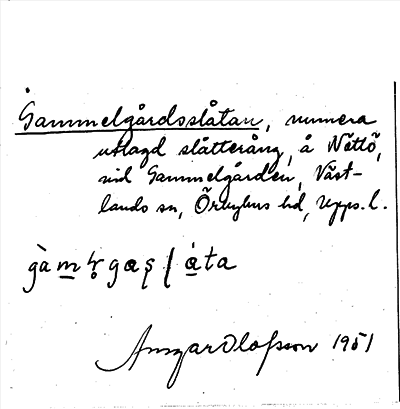 Gammelgårdsslåtan, numera
utlagd slåtteräng, å Nöttö,
vid Gammelgården, Väst-
lands sn, Örbyhus hd, Upps. l.
Ansgar Olofsson 1951